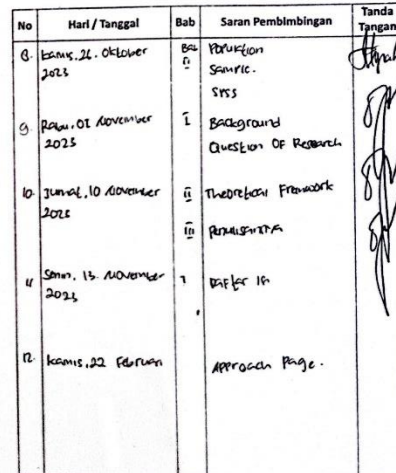 No Hari / Tanggal Bab Saran Pembimbingan Tanda Tangan
8. Kamis, 26. Oktober 2023 Bab II Population
Sample.
SPSS
9. Rabu, 01 November 2023 I Background
Question OF Research
10. Jumat, 10 November 2023 II Theoretical Framework
III Penulisannya
11 Senin, 13. November 2023 1 Daftar Isi
12. Kamis, 22 Februari Approach Page.